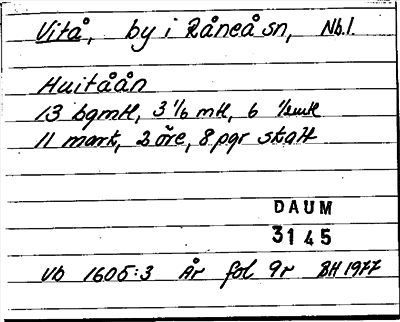 Vitå, by i Råneå sn, Nb.l.
Huitåån
13 bgmtl, 3 1/6 mtl, 6 1/2mtl
11 mark, 2 öre, 8 pgr skatt
DAUM
3145
Vb 1605:3 År fol 9r BH 1977